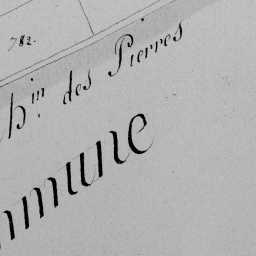 782.
Chin des Pierres
mmune